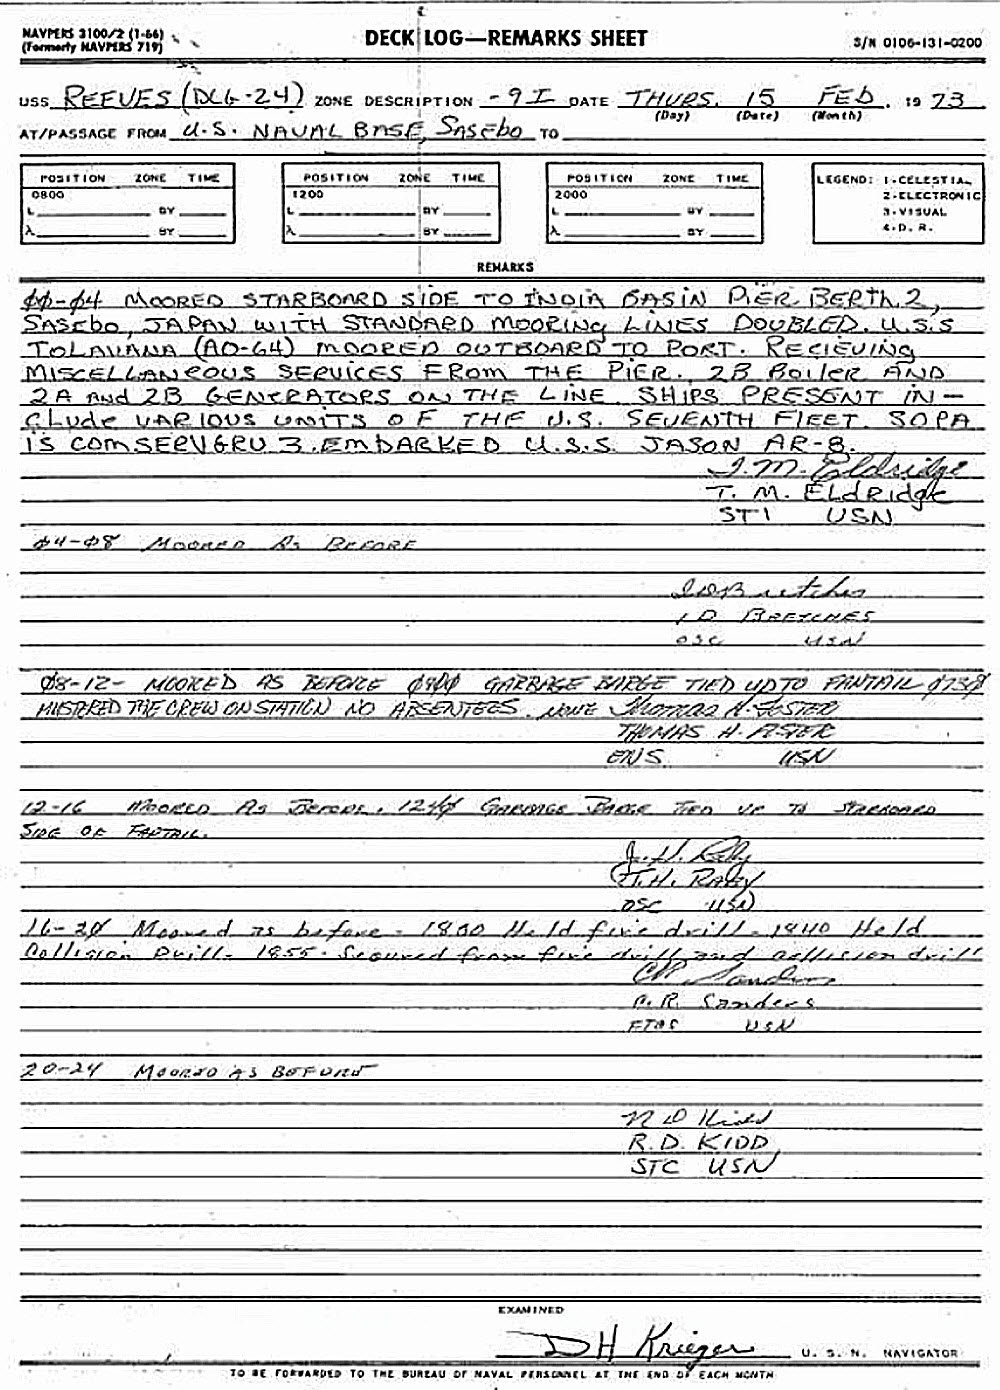 NAVPERS 3100/2 (1-66)
(Formerly NAVPERS 719)
DECK LOG—REMARKS SHEET
S/N 0106-131-0200
USS REEVES (DLG-24) ZONE DESCRIPTION -9I DATE THURS. 15 FEB. 19 73
(Day) (Date) (Month)
AT/PASSAGE FROM U.S. NAVAL BASE, SASEBO TO
POSITION ZONE TIME
0800
L BY
λ BY
POSITION ZONE TIME
1200
L BY
λ BY
POSITION ZONE TIME
2000
L BY
λ BY
LEGEND: 1-CELESTIAL
2-ELECTRONIC
3-VISUAL
4-D. R.
REMARKS
ØØ-Ø4 MOORED STARBOARD SIDE TO INDIA BASIN PIER BERTH 2,
SASEBO, JAPAN WITH STANDARD MOORING LINES DOUBLED. U.S.S
TOLAVANA (AO-64) MOORED OUTBOARD TO PORT. RECIEVING
MISCELLANEOUS SERVICES FROM THE PIER. 2B BOILER AND
2A AND 2B GENERATORS ON THE LINE SHIPS PRESENT IN-
CLUDE VARIOUS UNITS OF THE U.S. SEVENTH FLEET. SOPA
IS COMSERVGRU 3. EMBARKED U.S.S. JASON AR-8.
T. M. Eldridge
T. M. ELDRIDGE
ST1 USN
Ø4-Ø8 MOORED AS BEFORE
I D Bretches
I D BRETCHES
OSC USN
Ø8-12- MOORED AS BEFORE Ø9ØØ GARBAGE BARGE TIED UP TO FANTAIL Ø73Ø
MUSTERED THE CREW ON STATION NO ABSENTEES. NONE Thomas H. Foster
THOMAS H. FOSTER
ENS USN
12-16 MOORED AS BEFORE. 124Ø GARBAGE BARGE TIED UP TO STARBOARD
SIDE OF FANTAIL.
J. H. Raby
(J. H. RABY
OSC USN)
16-2Ø Moored as before - 1800 Held fire drill - 1840 Held
Collision Drill - 1855 - Secured from fire drill and collision drill
C R Sanders
C. R. Sanders
USN
20-24 MOORED AS BEFORE
R D Kidd
R.D. KIDD
STC USN
EXAMINED
D H Krieger U. S. N. NAVIGATOR
TO BE FORWARDED TO THE BUREAU OF NAVAL PERSONNEL AT THE END OF EACH MONTH